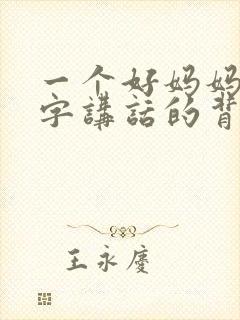 一个好妈妈
字講話的背
王永慶